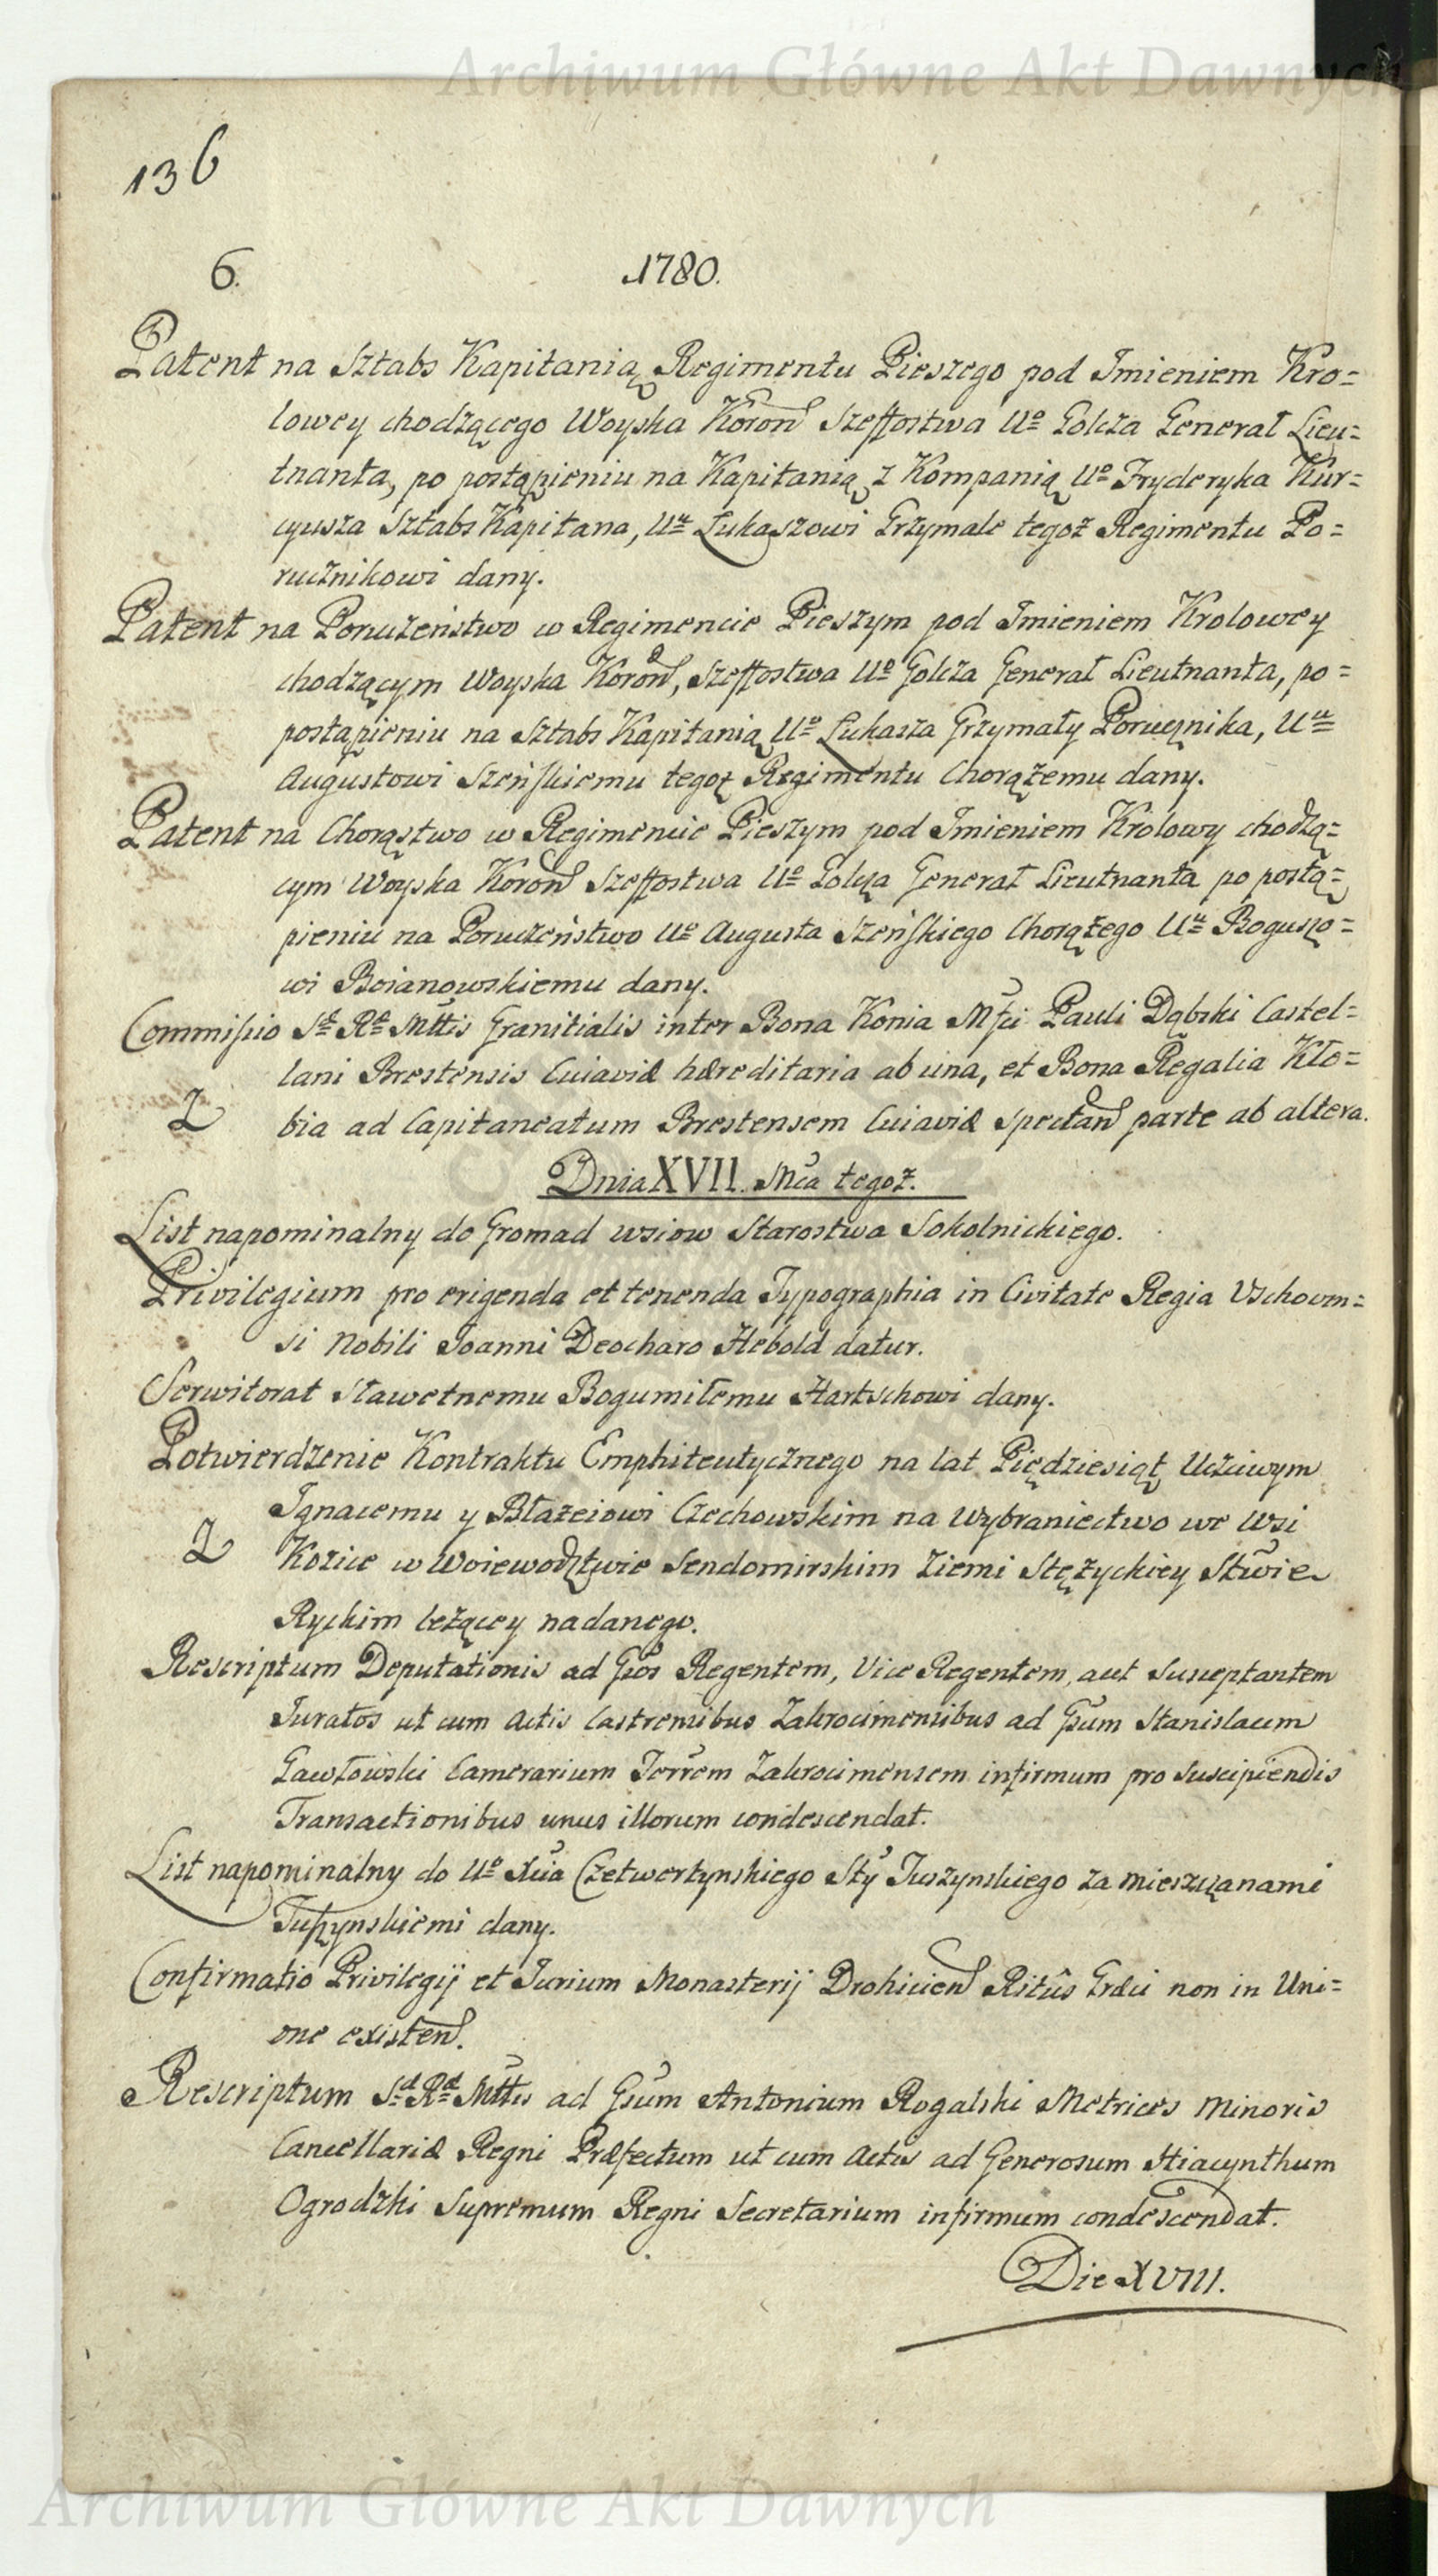 Archiwum Główne Akt Dawnych
136
6. 1780.
Patent na Sztabs Kapitanią Regimentu Pieszego pod Imieniem Kro=
lowey chodzącego Woyska Koron̄ Szeffostwa Uº Golcza Generał Lieu=
tnanta, po postąpieniu na Kapitanią z Kompanią Uº Fryderyka Kur=
cyusza Sztabs Kapitana, Uᵘ Łukaszowi Grzymale tegoż Regimentu Po=
rucznikowi dany.
Patent na Poruczeństwo w Regimencie Pieszym pod Imieniem Krolowey
chodzącym Woyska Koron̄, Szeffostwa Uº Golcza Generał Lieutnanta, po=
postąpieniu na Sztabs Kapitanią Uº Łukasza Grzymały Porucznika, Uᵘ
Augustowi Szeńskiemu tegoż Regimentu Chorążemu dany.
Patent na Chorąstwo w Regimencie Pieszym pod Imieniem Krolowy chodzą=
cym Woyska Koron̄ Szeffostwa Uº Golcza Generał Lieutnanta po postą=
pieniu na Poruczeństwo Uº Augusta Szeńskiego Chorążego Uᵘ Boguszo=
wi Boianowskiemu dany.
Commissio Sᵉ Rᵉ Mttis Granitialis inter Bona Konia Mfci Pauli Dąbski Castel=
lani Brestensis Cuiaviæ hæreditaria ab una, et Bona Regalia Kło=
bia ad Capitaneatum Brestensem Cuiaviæ spectan̄ parte ab altera.
Dnia XVII. Mca tegoż.
List napominalny do Gromad wsiow Starostwa Sokolnickiego.
Privilegium pro erigenda et tenenda Typographia in Civitate Regia Vschoven=
si Nobili Joanni Deocharo Hebold datur.
Serwitorat Sławetnemu Bogumiłemu Hartschowi dany.
Potwierdzenie Kontraktu Emphiteutycznego na lat Piędziesiąt Uczciwym
Ignacemu y Błażeiowi Czechowskim na Wybraniectwo we Wsi
Kozice w Woiewodztwie Sendomirskim Ziemi Stężyckiey Stwie
Ryckim leżącey nadanego.
Rescriptum Deputationis ad Gsos Regentem, Vice Regentem, aut Susceptantem
Juratos ut cum Actis Castrensibus Zakrocimensibus ad Gsum Stanislaum
Gawłowski Camerarium Terrem Zakrocimensem infirmum pro Suscipiendis
Transactionibus unus illorum condescendat.
List napominalny do Uº Xcia Czetwertynskiego Sty Tuszynskiego za mieszczanami
Tuszynskiemi dany.
Confirmatio Privilegij et Jurium Monasterij Drohicien̄ Ritûs Græci non in Uni=
one existen̄.
Rescriptum Sᵈ Rᵈ Mttis ad Gsum Antonium Rogalski Metrices Minoris
Cancellariæ Regni Præfectum ut cum Actis ad Generosum Hiacynthum
Ogrodzki Supremum Regni Secretarium infirmum condescendat.
Die XVIII.
Archiwum Główne Akt Dawnych